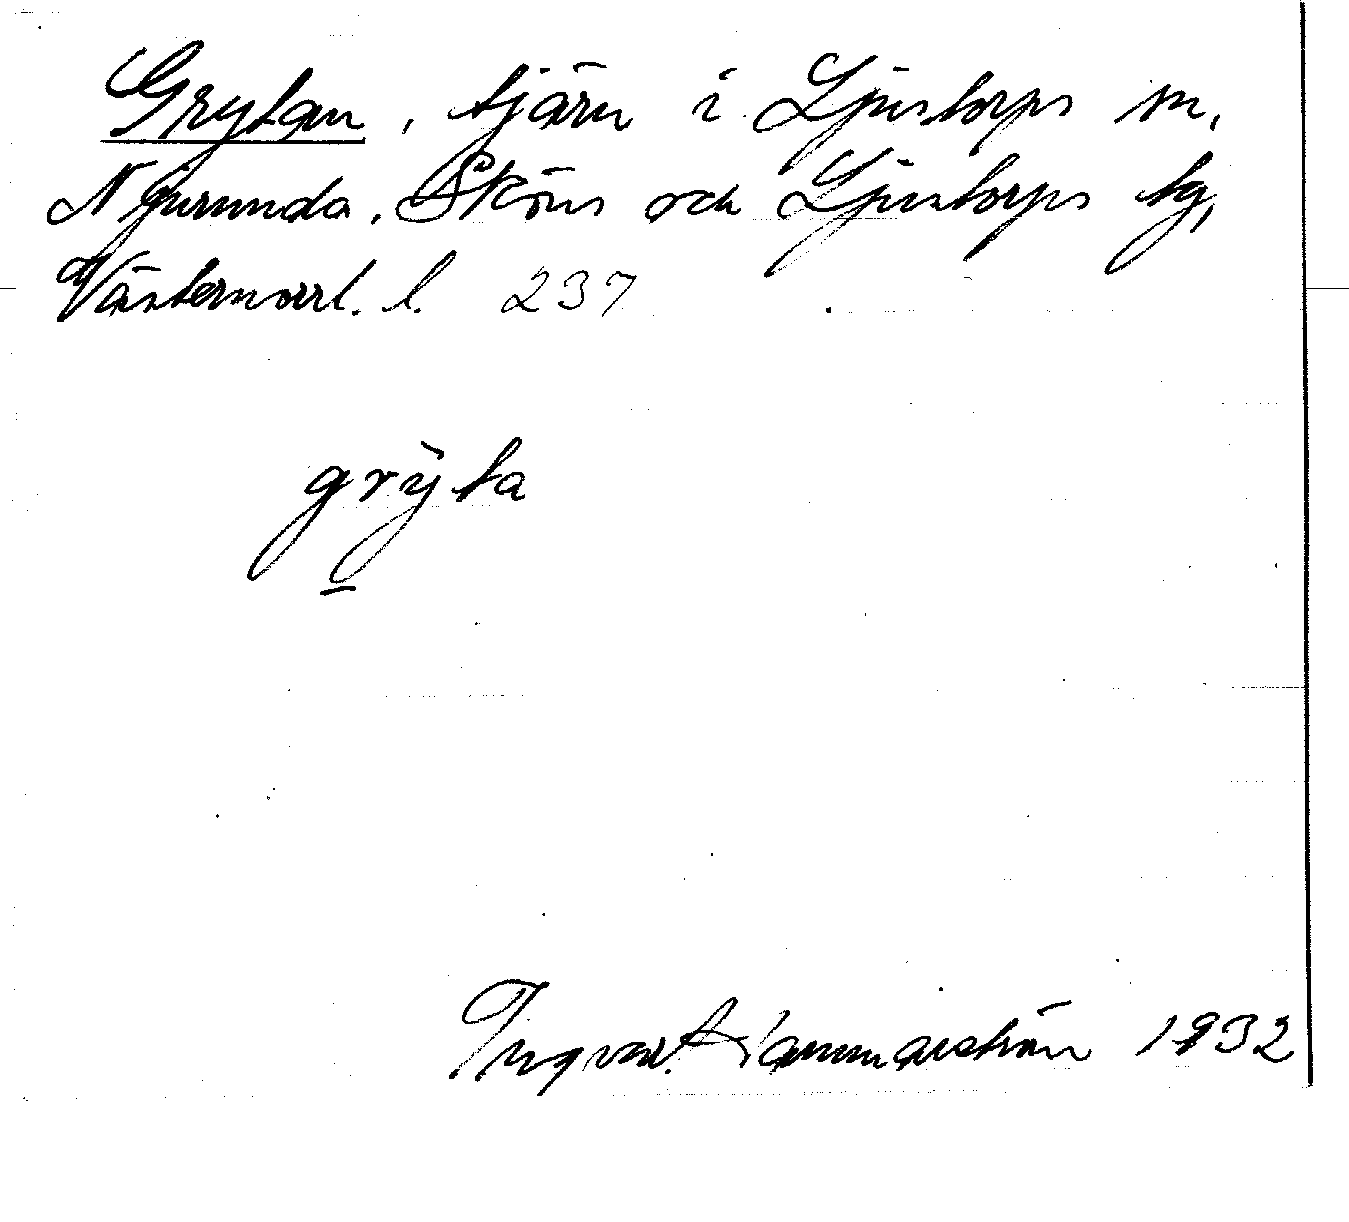 Grytan, tjärn i Ljustorps sn,
Njurunda, Sköns och Ljustorps tg,
Västernorrl. l. 237
grỳta
Ingvar Hammarström 1932